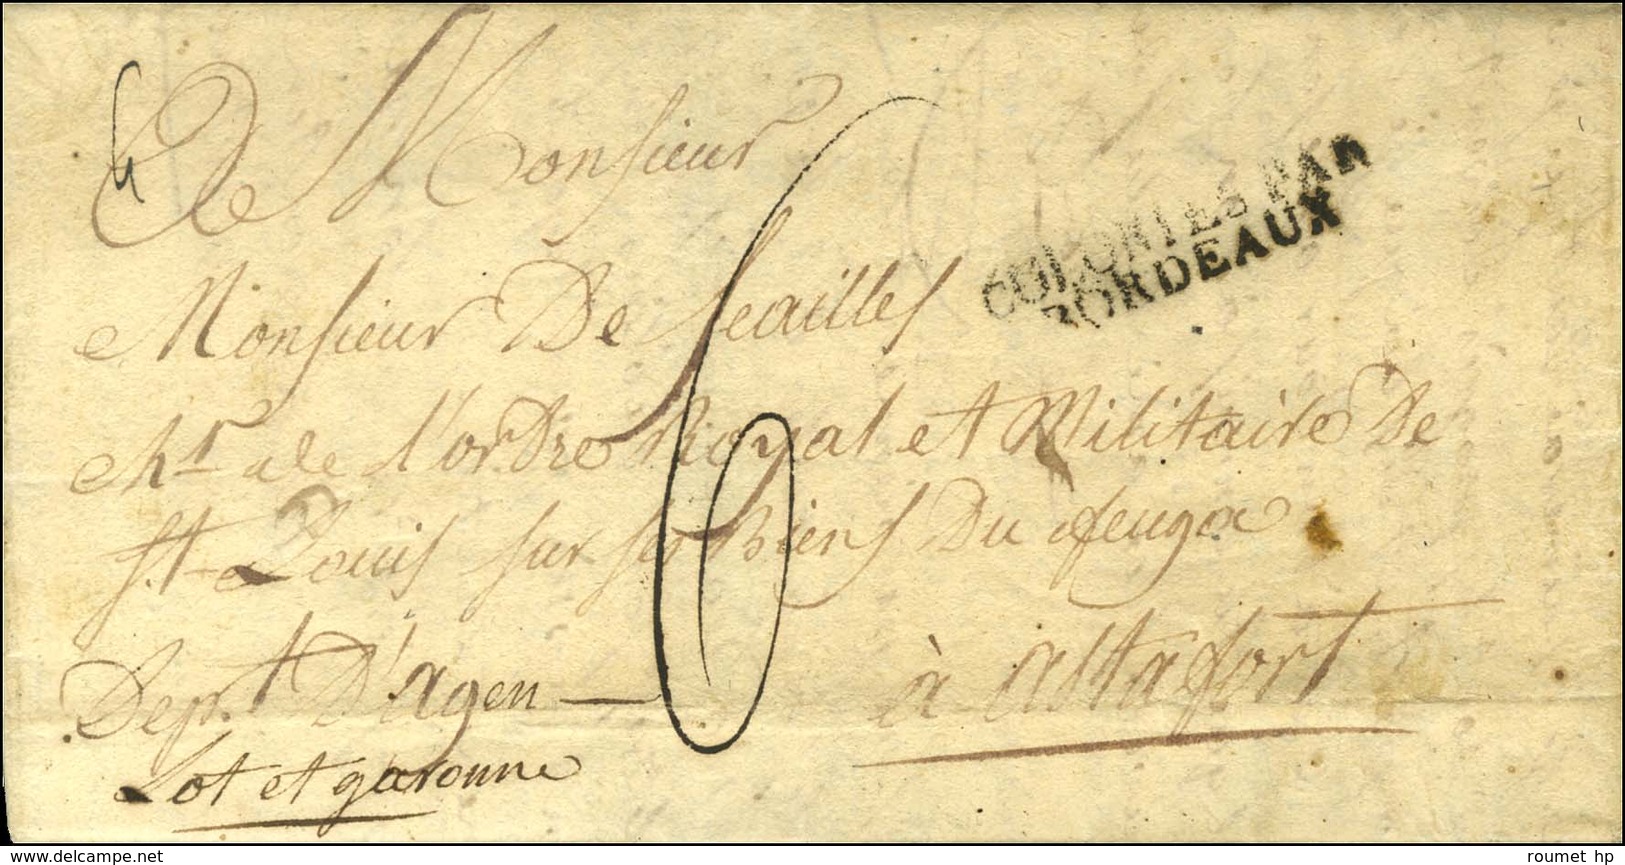 A Monsieur
Monsieur De Seailles
chr de l'ordre Royal et Militaire De
St Louis sur ses Biens Du feuga
Depr.t D'Agen — à Astafort
Lot et garonne
6
COLONIES PAR
BORDEAUX
roumet hp
delcampe.net